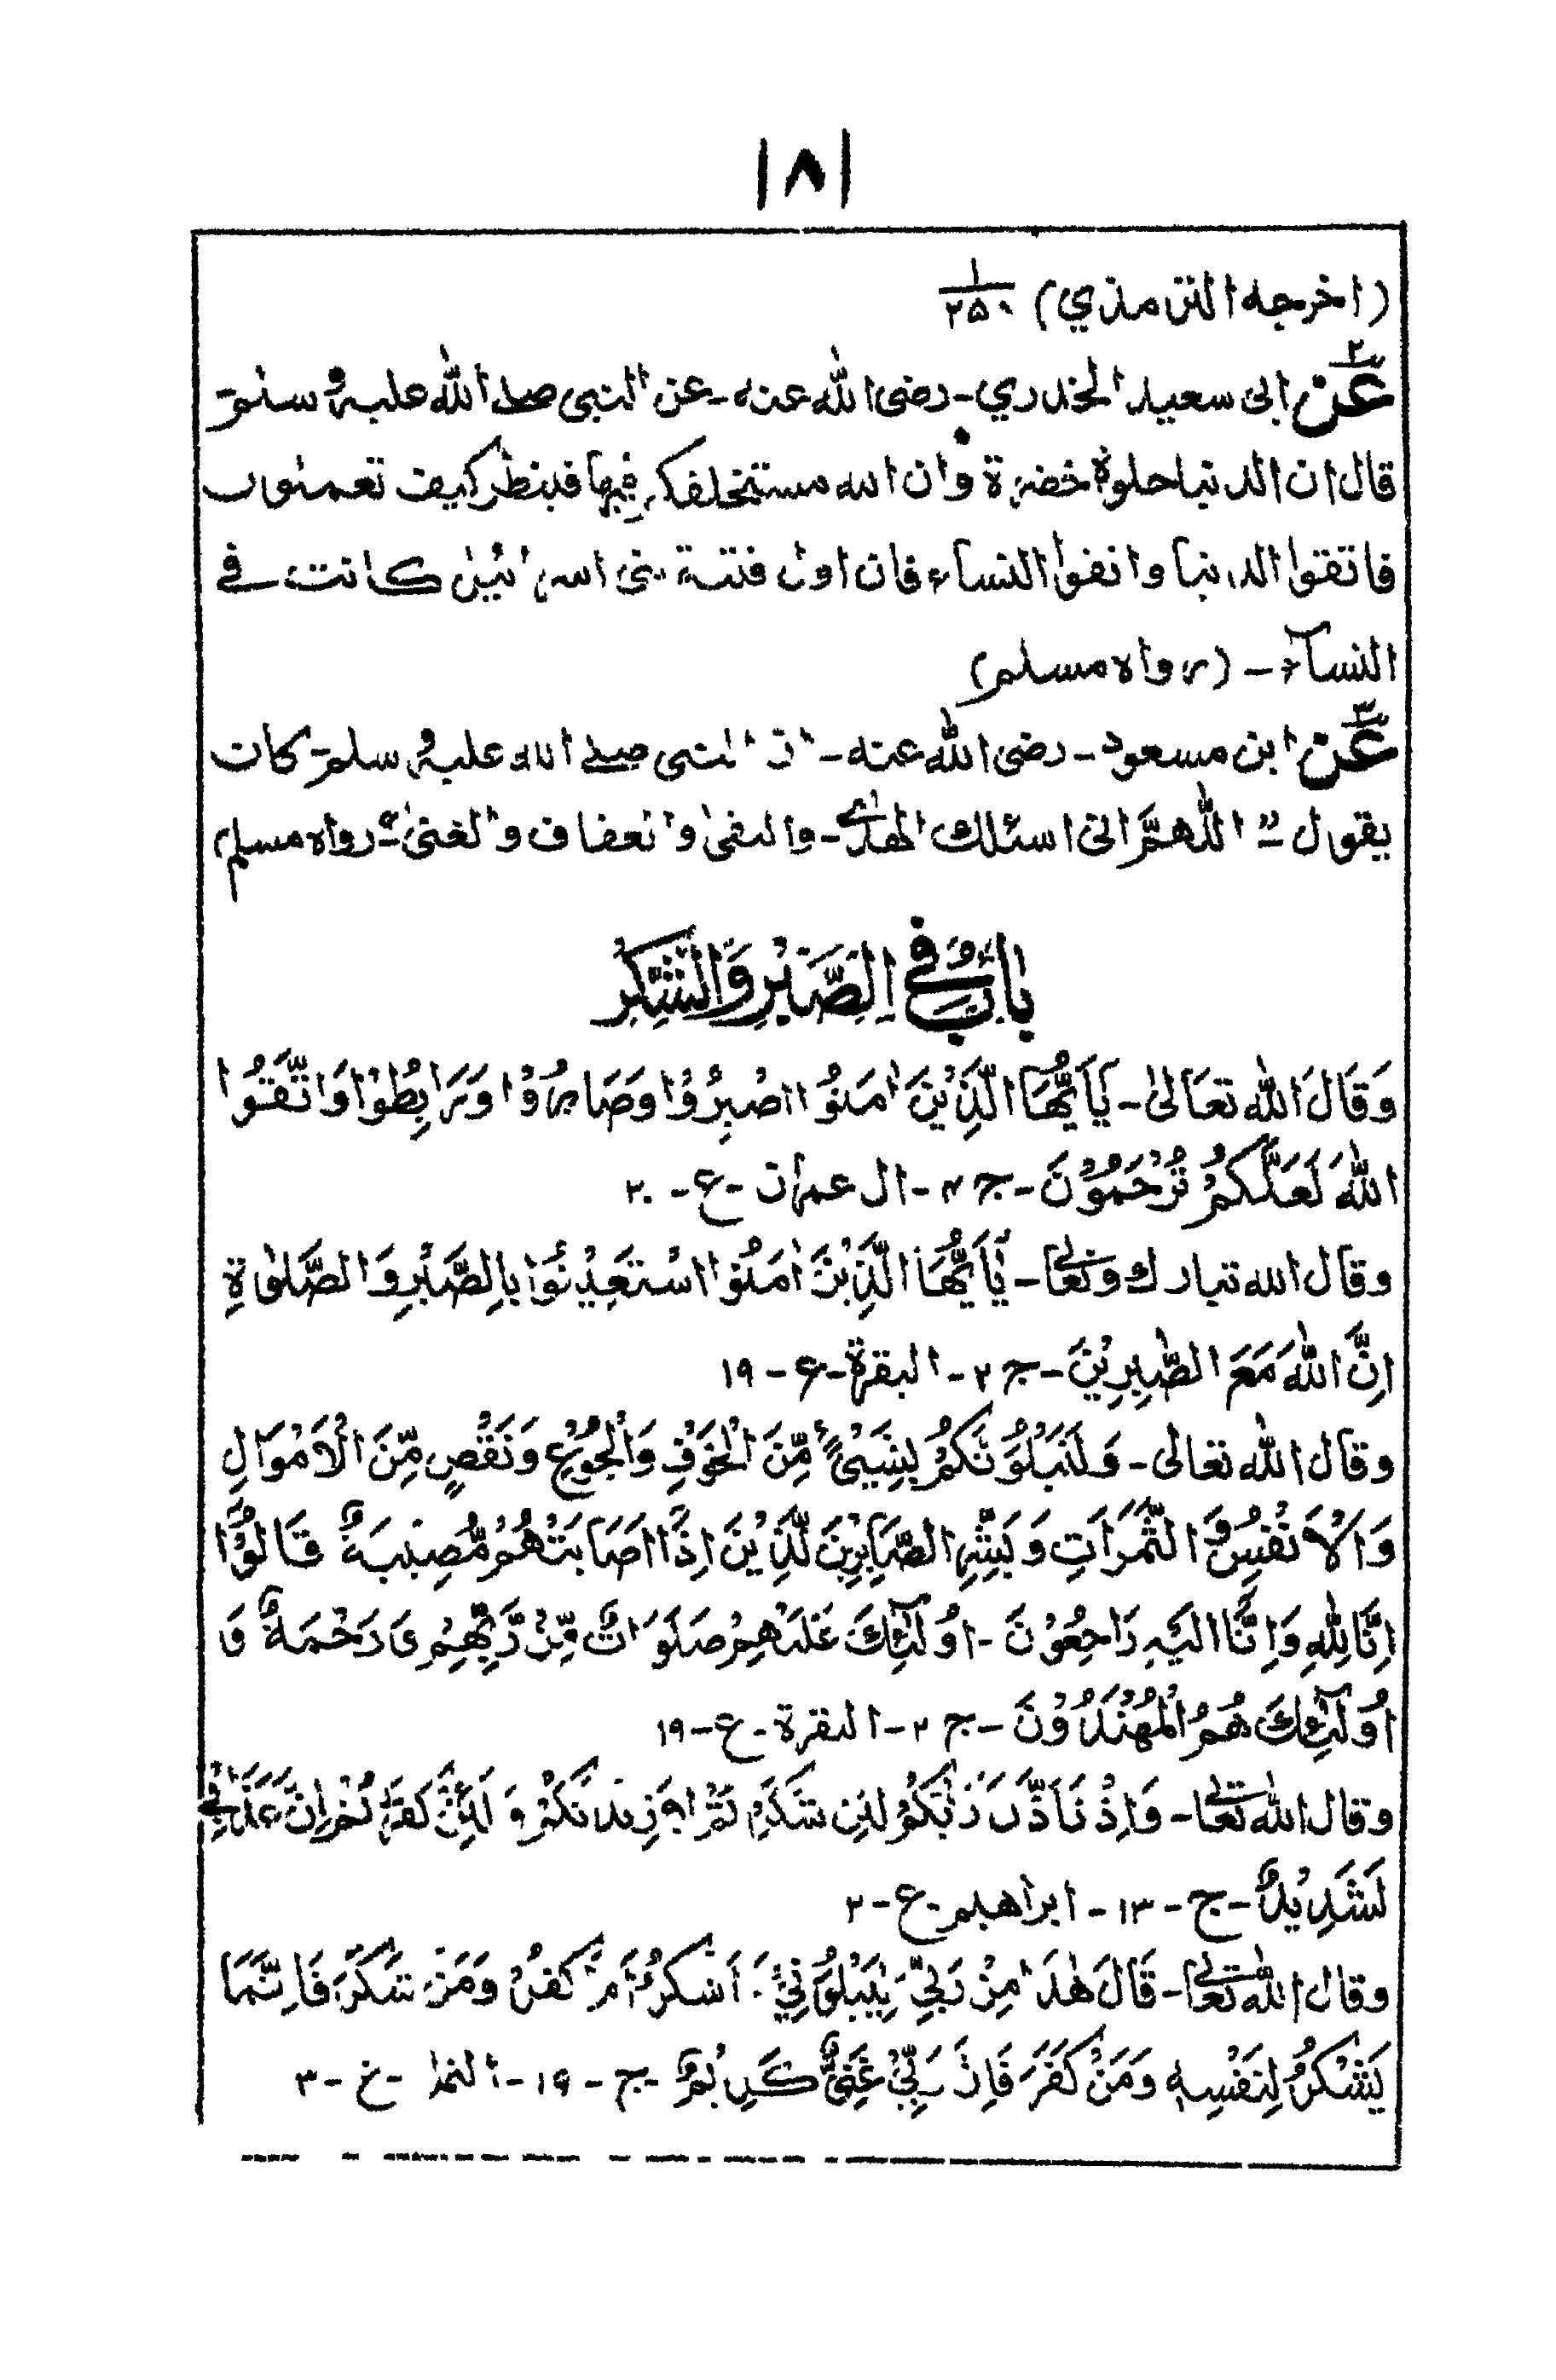 ١٨١
(اخرجه الترمذي) ١/٢٥٠
٢ عن ابی سعید الخدري - رضی الله عنه - عن النبی صلے الله علیه و سلم
قال ان الدنیا حلوة خضرة وان الله مستخلفکم فیها فینظر کیف تعملون
فاتقوا الدنیا واتقوا النساء فان اول فتنة بنی اسرائیل کانت فے
النسآء - (رواه مسلم)
٣ عن ابن مسعود - رضی الله عنه - ان النبی صلے الله علیه و سلم کان
یقول " اللهمَّ انی اسئلك الهدٰے - والتقیٰ والعفاف والغنیٰ" - رواه مسلم
بَابٌ فِی الصَّبْرِ وَالشُّكْرِ
وَقَالَ اللهُ تَعَالیٰ - یٰۤاَیُّهَا الَّذِیْنَ اٰمَنُوا اصْبِرُوْا وَصَابِرُوْا وَرَابِطُوْا وَاتَّقُوا
اللهَ لَعَلَّكُمْ تُرْحَمُوْنَ - ج ٤ - ال عمران - ع - ٢٠
وقال الله تبارك وتعالٰی - یٰۤاَیُّهَا الَّذِیْنَ اٰمَنُوا اسْتَعِیْنُوْا بِالصَّبْرِ وَالصَّلٰوةِ
اِنَّ اللهَ مَعَ الصّٰبِرِیْنَ - ج ٢ - البقرة - ع - ١٩
وقال الله تعالی - وَلَنَبْلُوَنَّكُمْ بِشَیْئٍ مِّنَ الْخَوْفِ وَالْجُوْعِ وَنَقْصٍ مِّنَ الْاَمْوَالِ
وَالْاَنْفُسِ وَ الثَّمَرَاتِ وَبَشِّرِ الصَّابِرِیْنَ الَّذِیْنَ اِذَا اَصَابَتْهُمْ مُّصِیْبَةٌ قَالُوْۤا
اِنَّا لِلّٰهِ وَاِنَّا اِلَیْهِ رَاجِعُوْنَ - اُولٰٓئِكَ عَلَیْهِمْ صَلَوَاتٌ مِّنْ رَّبِّهِمْ وَرَحْمَةٌ وَ
اُولٰٓئِكَ هُمُ الْمُهْتَدُوْنَ - ج ٢ - البقرة - ع - ١٩
وقال الله تعالٰی - وَاِذْ تَاَذَّنَ رَبُّكُمْ لَئِنْ شَكَرْتُمْ لَاَزِیْدَنَّكُمْ وَ لَئِنْ كَفَرْتُمْ اِنَّ عَذَابِیْ
لَشَدِیْدٌ - ج - ١٣ - ابراهیم - ع - ٢
وقال الله تعالٰی - قَالَ هٰذَا مِنْ رَبِّیْ لِیَبْلُوَنِیْۤ ءَاَشْكُرُ اَمْ اَكْفُرُ وَمَنْ شَكَرَ فَاِنَّمَا
یَشْكُرُ لِنَفْسِهٖ وَمَنْ كَفَرَ فَاِنَّ رَبِّیْ غَنِیٌّ كَرِیْمٌ - ج - ١٩ - النمل - ع - ٣